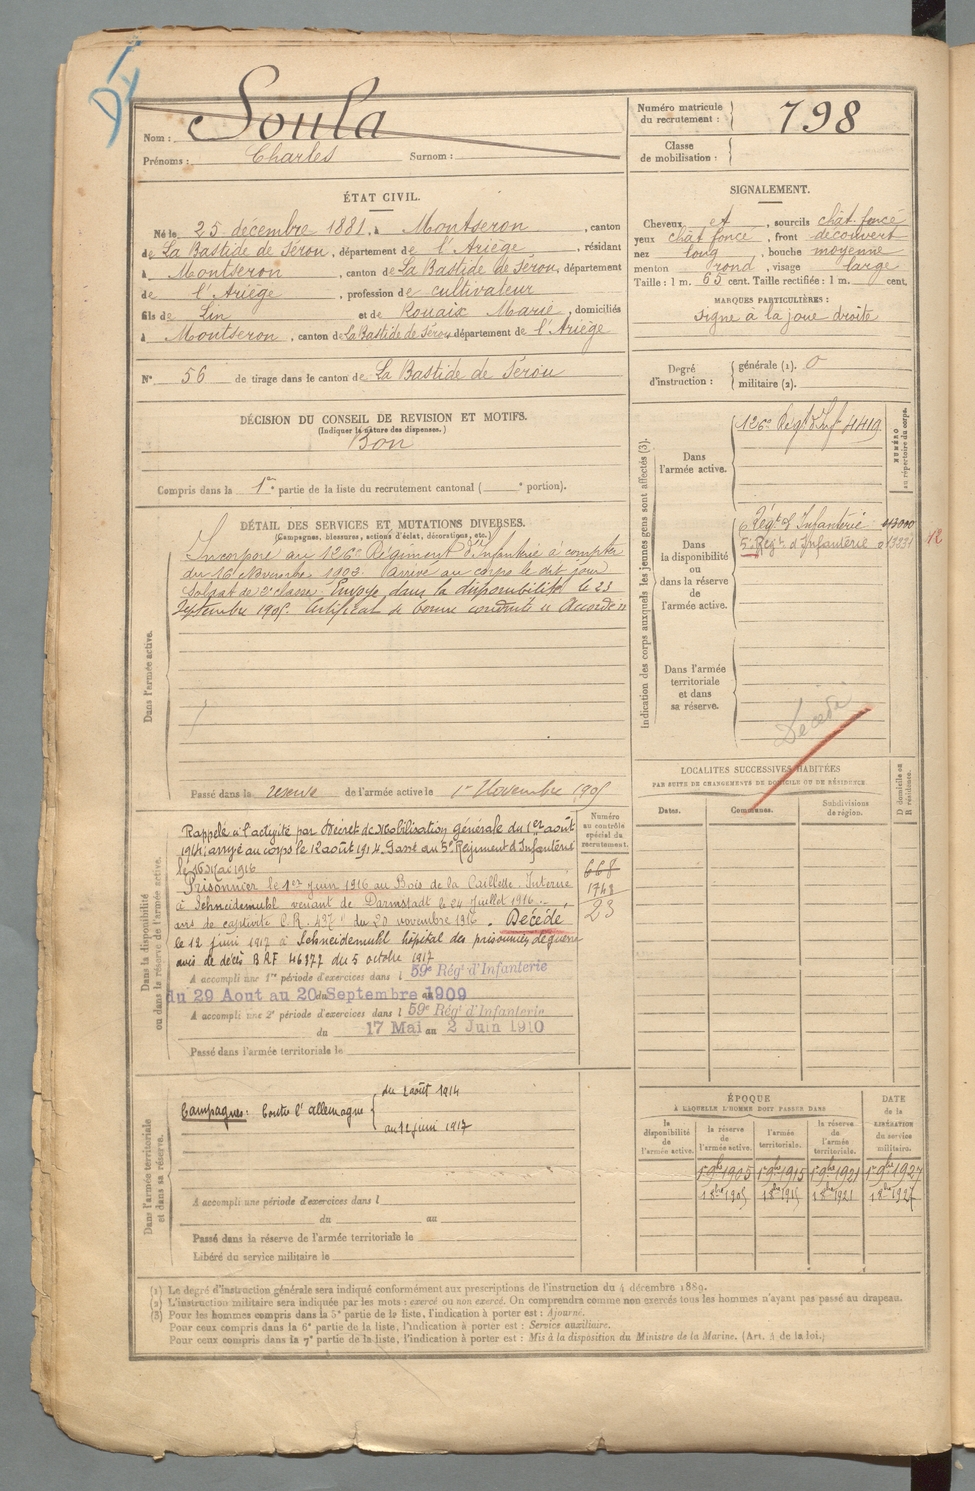 Nom : Soula
Prénoms : Charles Surnom :
Numéro matricule du recrutement : 798
Classe de mobilisation :
ÉTAT CIVIL.
Né le 25 décembre 1881, à Montseron, canton
de La Bastide de Sérou, département de l'Ariège, résidant
à Montseron, canton de La Bastide de Sérou, département
de l'Ariège, profession de cultivateur
fils de Lin et de Rouaix Marie, domiciliés
à Montseron, canton de La Bastide de Sérou département de l'Ariège
N° 56 de tirage dans le canton de La Bastide de Sérou
SIGNALEMENT.
Cheveux et, sourcils chât. foncé
yeux chât foncé, front découvert
nez long, bouche moyenne
menton rond, visage large
Taille : 1 m. 65 cent. Taille rectifiée : 1 m. cent.
MARQUES PARTICULIÈRES :
signe à la joue droite
Degré d'instruction : générale (1). 0
militaire (2).
DÉCISION DU CONSEIL DE REVISION ET MOTIFS.
(Indiquer la nature des dispenses.)
Bon
Compris dans la 1re partie de la liste du recrutement cantonal ( e portion).
DÉTAIL DES SERVICES ET MUTATIONS DIVERSES.
(Campagnes, blessures, actions d'éclat, décorations, etc.)
Dans l'armée active.
Incorporé au 126e Régiment d'infanterie à compter
du 16 Novembre 1903. Arrivé au corps le dit jour
Soldat de 2e classe. Envoyé dans la disponibilité le 23
Septembre 1905. Certificat de bonne conduite « Accordé »
Passé dans la réserve de l'armée active le 1er Novembre 1905
Indication des corps auxquels les jeunes gens sont affectés (3).
NUMÉRO au répertoire du corps.
Dans l'armée active. 126e Régt d'Inf 4419
Dans la disponibilité ou dans la réserve de l'armée active.
Régt d'Infanterie
5e Régt d'Infanterie
Dans l'armée territoriale et dans sa réserve.
Décédé
LOCALITÉS SUCCESSIVES HABITÉES
PAR SUITE DE CHANGEMENTS DE DOMICILE OU DE RÉSIDENCE.
Dates. Communes. Subdivisions de région. D domicile ou R résidence.
Dans la disponibilité ou dans la réserve de l'armée active.
Numéro au contrôle spécial du recrutement.
668
1748
23
Rappelé à l'activité par Décret de Mobilisation générale du 1er août
1914, arrivé au corps le 12 août 1914. Passé au 5e Régiment d'Infanterie
le 16 Mai 1916
Prisonnier le 1er juin 1916 au Bois de la Caillette. Interné
à Schneidemuhl venant de Darmstadt le 24 Juillet 1916.
avis de captivité C.R. 437 du 20 novembre 1916. Décédé
le 12 juin 1917 à Schneidemuhl hôpital des prisonniers de guerre
avis de décès BRF 46377 du 5 octobre 1917
A accompli une 1re période d'exercices dans l 59e Régt d'Infanterie
du 29 Aout au 20 Septembre 1909
A accompli une 2e période d'exercices dans l 59e Régt d'Infanterie
du 17 Mai au 2 Juin 1910
Passé dans l'armée territoriale le
Dans l'armée territoriale et dans sa réserve.
Campagnes : Contre l'allemagne du 2 août 1914
au 12 juin 1917
A accompli une période d'exercices dans l
du au
Passé dans la réserve de l'armée territoriale le
Libéré du service militaire le
ÉPOQUE
À LAQUELLE L'HOMME DOIT PASSER DANS
la disponibilité de l'armée active.
la réserve de l'armée active.
l'armée territoriale.
la réserve de l'armée territoriale.
DATE de la LIBÉRATION du service militaire.
1 9bre 1905 1 9bre 1915 1 9bre 1921 1 9bre 1927
(1) Le degré d'instruction générale sera indiqué conformément aux prescriptions de l'instruction du 4 décembre 1889.
(2) L'instruction militaire sera indiquée par les mots : exercé ou non exercé. On comprendra comme non exercés tous les hommes n'ayant pas passé au drapeau.
(3) Pour les hommes compris dans la 5e partie de la liste, l'indication à porter est : Ajourné.
Pour ceux compris dans la 6e partie de la liste, l'indication à porter est : Service auxiliaire.
Pour ceux compris dans la 7e partie de la liste, l'indication à porter est : Mis à la disposition du Ministre de la Marine. (Art. 4 de la loi.)